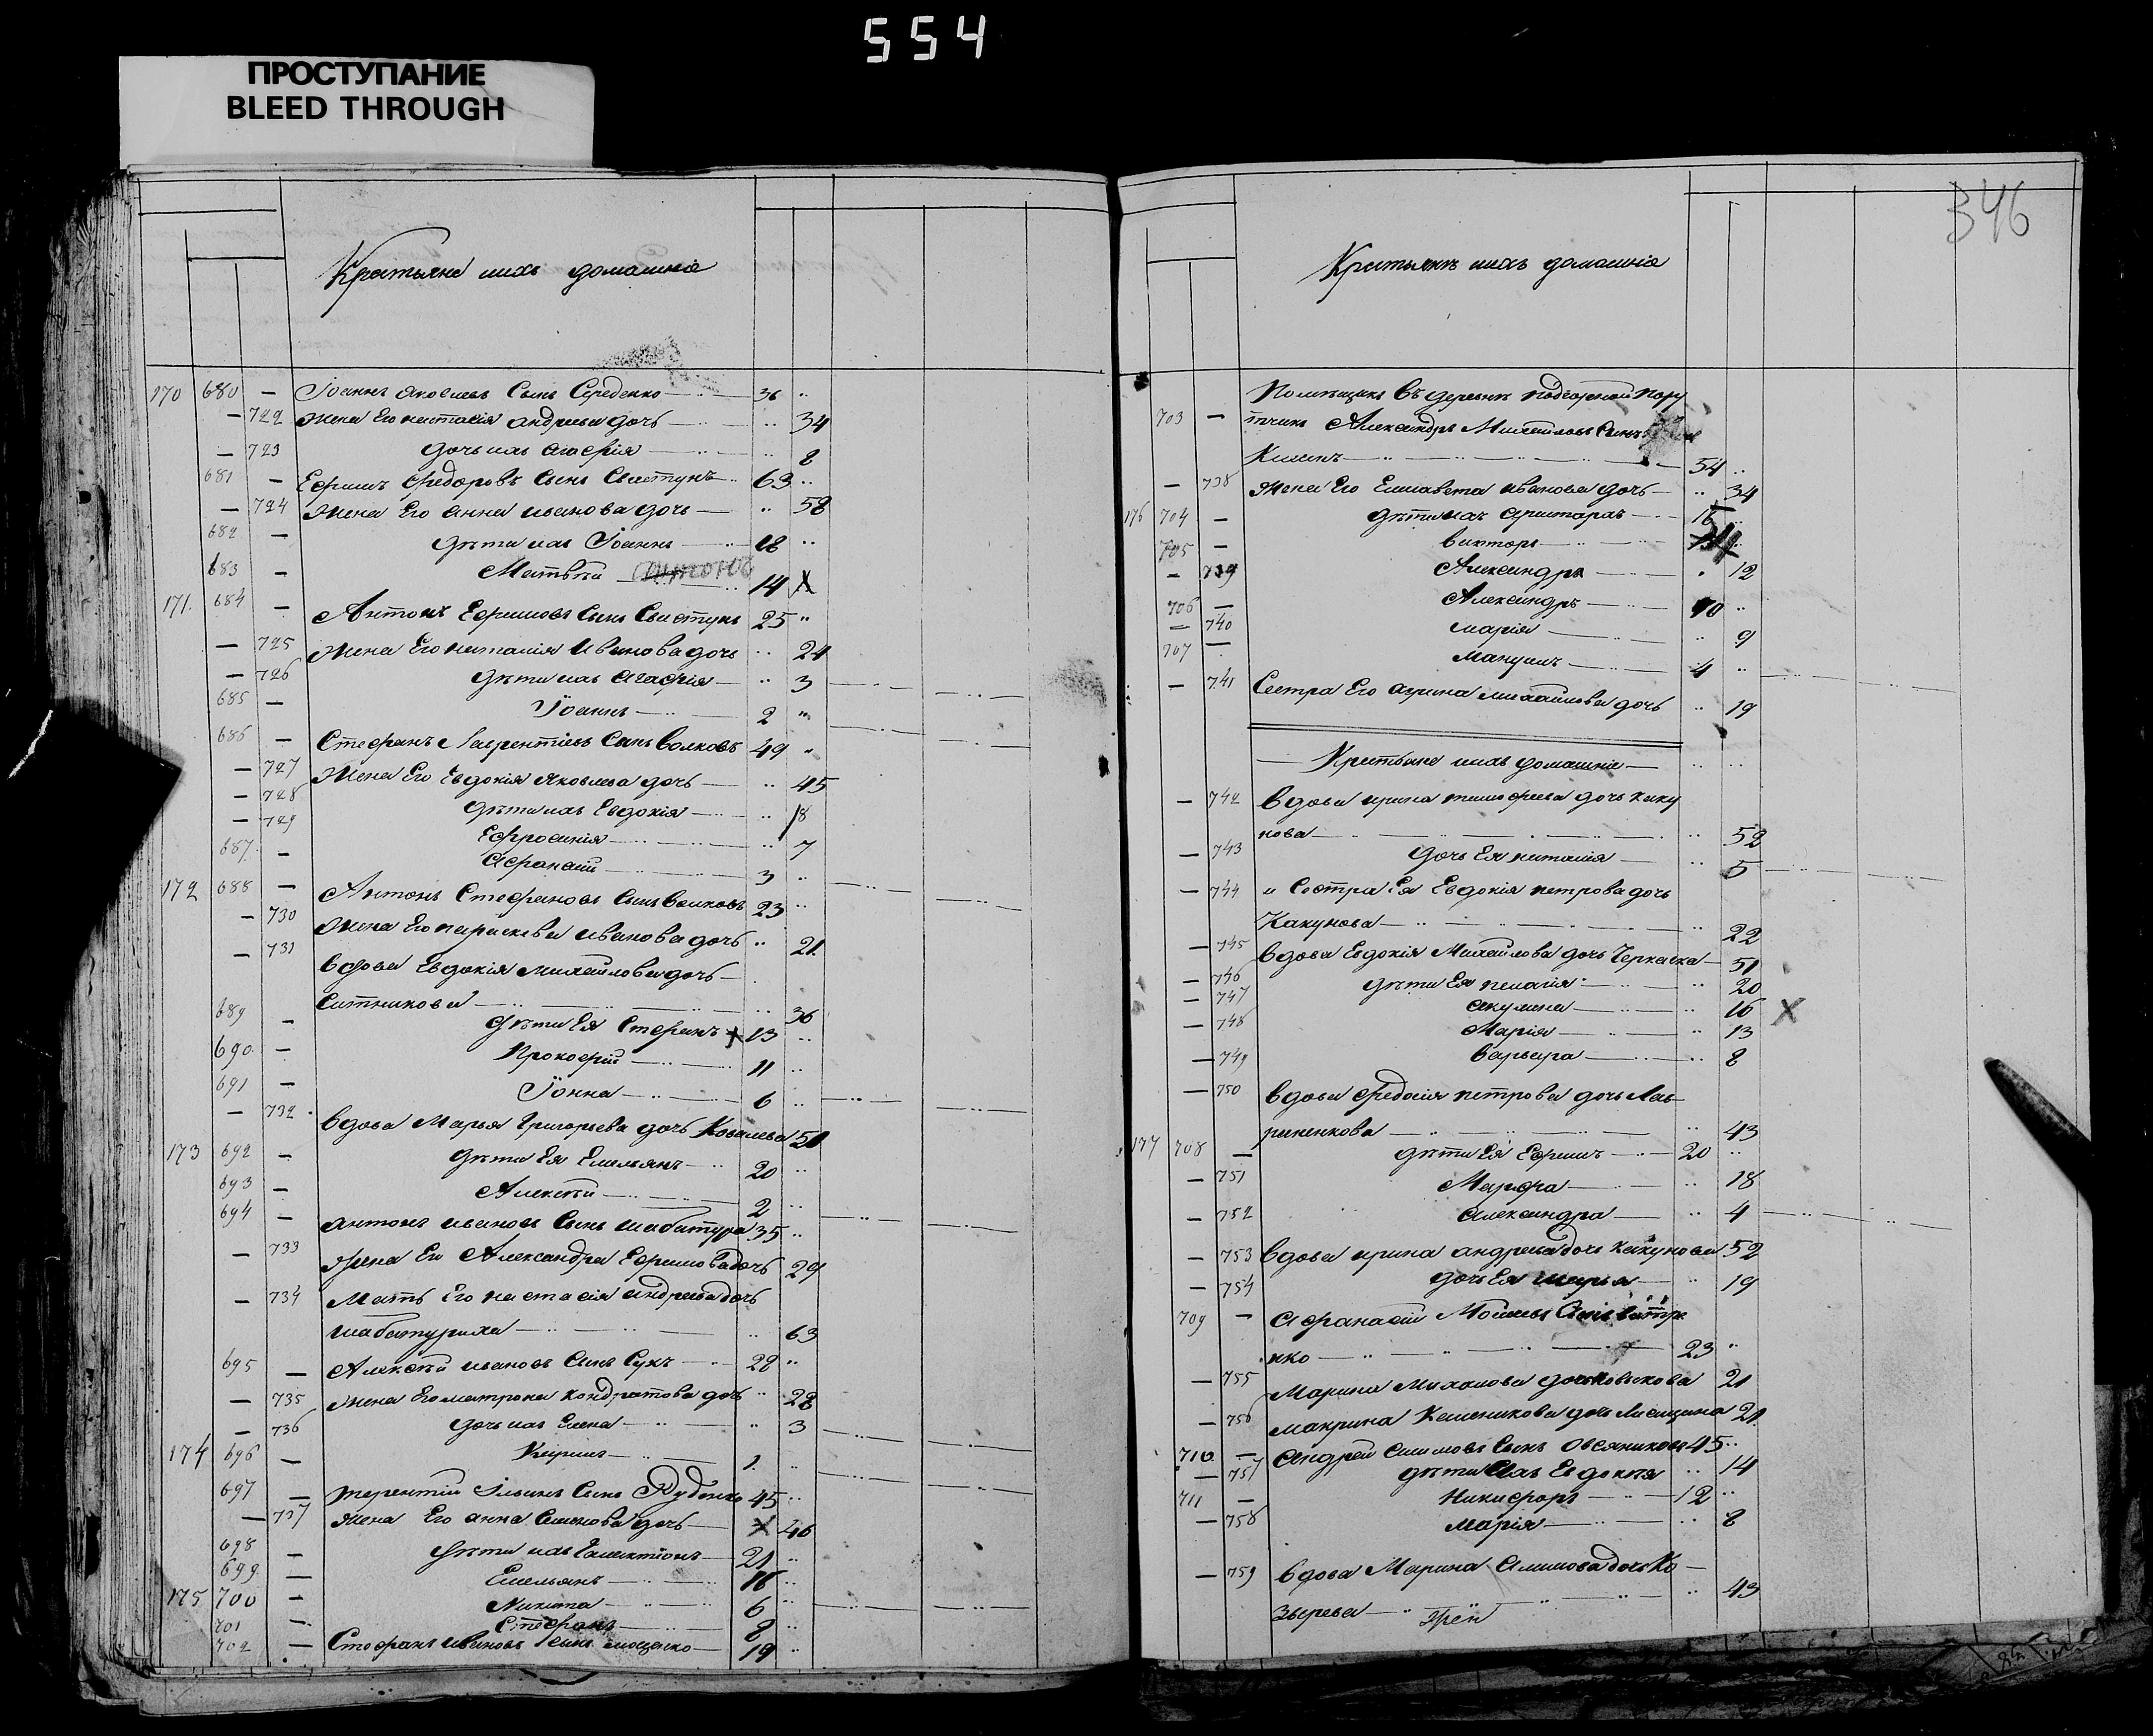 554
ПРОСТУПАНИЕ
BLEED THROUGH
Крестьяне ихъ домашніе
170 680 — Іоаннъ Яковлевъ Сынъ Середенко 36 ..
— 722 Жена Его наталія андреева дочь .. 34
— 723 дочь ихъ Агафія .. 8
681 — Ефимъ Федоровъ Сынъ Свистунъ 63 ..
— 724 Жена Его Анна иванова дочь .. 58
682 — дѣти ихъ Іоаннъ 18 ..
683 — Матвѣй 14
171 684 — Антонъ Ефимовъ Сынъ Свистунъ 25 ..
— 725 Жена Его наталія Иванова дочь .. 24
— 726 дѣти ихъ Агафія .. 3
685 — Іоаннъ 2 ..
686 — Стефанъ Лаврентіевъ Сынъ Волковъ 49 ..
— 727 Жена Его Евдокія Яковлева дочь .. 45
— 728 дѣти ихъ Евдокія .. 18
— 729 Ефросинія .. 7
687 — Афанасій 3 ..
172 688 — Антонъ Стефановъ Сынъ Волковъ 23 ..
— 730 Жена Его параскева иванова дочь .. 21
— 731 вдова Евдокія Михайлова дочь
Ситникова .. 36
689 — дѣти Ея Стефанъ 13 ..
690 — Прокофій 11 ..
691 — Іонна 6 ..
— 732 вдова Марья Григорьева дочь Ковалева 50
173 692 — дѣти Ея Емельянъ 20 ..
693 — Алексѣй 2 ..
694 — Антонъ ивановъ Сынъ шабатура 35 ..
— 733 Жена Его Александра Ефимова дочь 29
— 734 Мать Его настасія андреева дочь
шабатуриха .. 63
695 — Алексѣй ивановъ Сынъ Сукъ 28 ..
— 735 Жена Его матрона кондратова дочь .. 28
— 736 дочь ихъ Елена .. 3
174 696 — Кирилъ 1 ..
697 — терентій Ильинъ Сынъ Руденко 45 ..
— 737 Жена Его анна Семенова дочь 46
698 — дѣти ихъ Галактіонъ 21 ..
699 — Емельянъ 16 ..
175 700 — Никита 6 ..
701 — Стефанъ 8 ..
702 — Стефанъ Ивановъ Сынъ 19 ..
346
Крестьянъ ихъ домашніе
Помѣщикъ въ деревнѣ подгорной пору
703 — тчикъ Александръ Михайловъ Сынъ
54 ..
— 738 Жена Его Елисавета иванова дочь .. 34
176 704 — дѣти ихъ аристархъ 16
705 — викторъ
— 739 Александра . 12
706 — Александръ 10 ..
— 740 марія .. 9
707 — 4 ..
— 741 Сестра Его агрипа михайлова дочь .. 19
Крестьяне ихъ домашніе
— 742 вдова ирина тимофеева дочь каку
нова .. 52
— 743 дочь Ея наталія .. 5
— 744 и Сестра Ея Евдокія петрова дочь
Какунова .. 22
— 745 вдова Евдокія Михайлова дочь Черкаска 51
— 746 дѣти Ея пелагія .. 20
— 747 Акулина .. 16
— 748 Марія .. 13
— 749 варвара .. 8
— 750 вдова Федосія петрова дочь Лав
риненкова .. 43
177 708 — дѣти Ея Ефимъ 20 ..
— 751 Марфа .. 18
— 752 Александра .. 4
— 753 вдова ирина андреева дочь какунова 52
— 754 дочь Ея марья .. 19
709 — Афанасій Моисеевъ Сынъ
нко 23 ..
— 755 Марина Михайлова дочь 21
— 756 макрина дочь 21
710 — Андрей Симоновъ Сынъ Овсяниковъ 45 ..
— 757 дѣти Ихъ Евдокія .. 14
711 — Никифоръ 12 ..
— 758 марія .. 8
— 759 вдова Марина Симонова дочь Ко
зырева .. 43